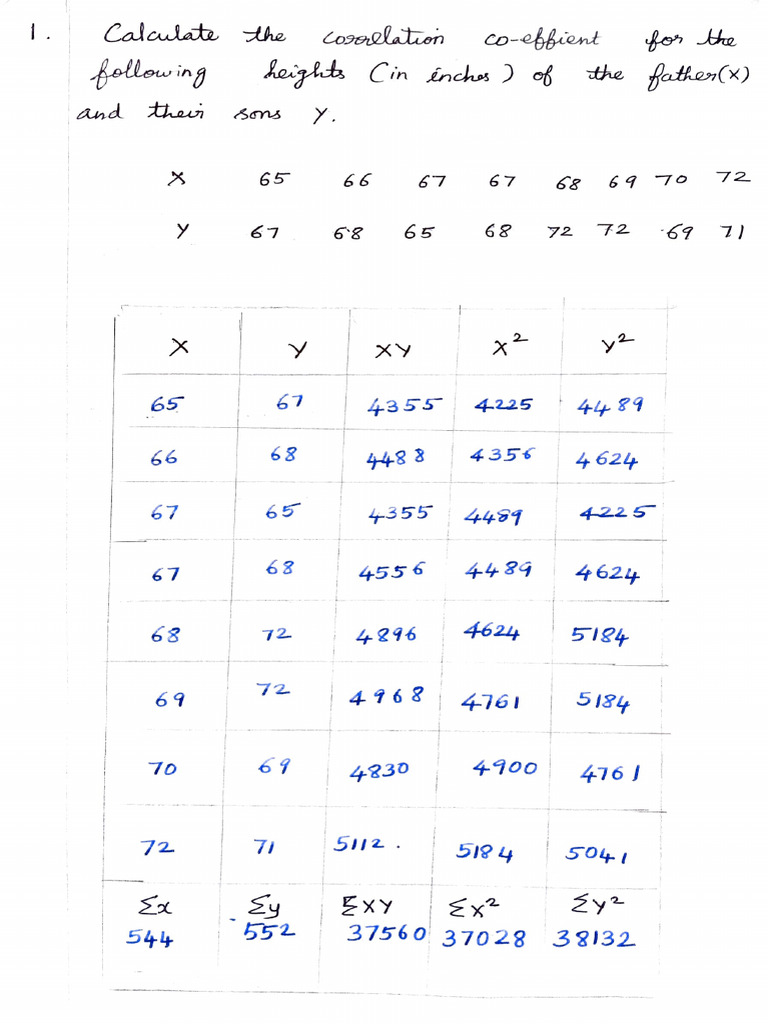 1. Calculate the correlation co-effient for the
following heights (in inches) of the father(x)
and their sons y.
x 65 66 67 67 68 69 70 72
y 67 68 65 68 72 72 69 71
x y xy x² y²
65 67 4355 4225 4489
66 68 4488 4356 4624
67 65 4355 4489 4225
67 68 4556 4489 4624
68 72 4896 4624 5184
69 72 4968 4761 5184
70 69 4830 4900 4761
72 71 5112. 5184 5041
Σx Σy Σxy Σx² Σy²
544 552 37560 37028 38132